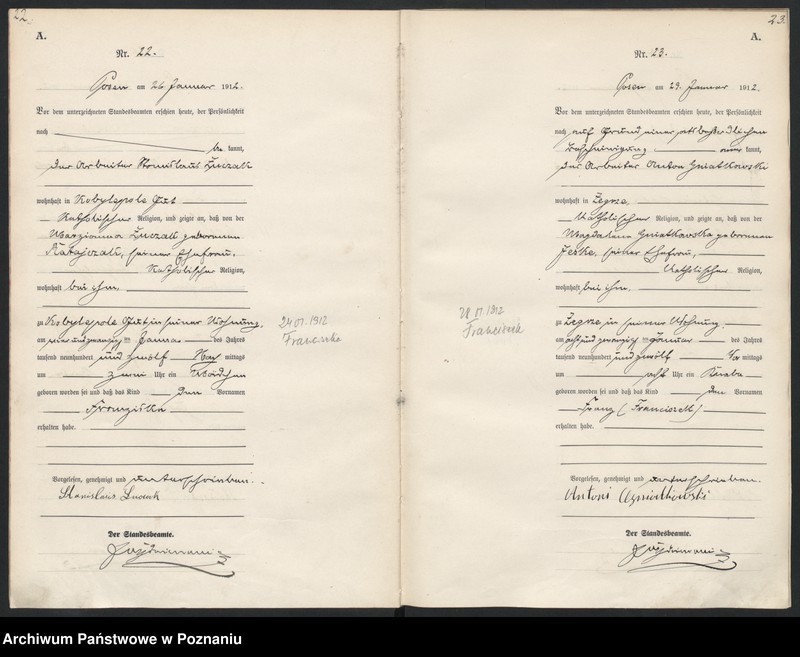 22.
A.
Nr. 22.
Posen am 26. Januar 1912.
Vor dem unterzeichneten Standesbeamten erschien heute, der Persönlichkeit
nach
be kannt,
der Arbeiter Stanislaus
wohnhaft in Kobylepole Gut
katholischer Religion, und zeigte an, daß von der
Marianna geborenen
Ratajczak, seiner Ehefrau,
katholischer Religion,
wohnhaft bei ihm
zu Kobylepole Gut in seiner Wohnung,
am vier und zwanzigsten Januar des Jahres
tausend neunhundert und zwölf Nach mittags
um zwei Uhr ein Mädchen
geboren worden sei und daß das Kind den Vornamen
Franziska
erhalten habe.
Vorgelesen, genehmigt und unterschrieben.
Stanislaus
Der Standesbeamte.
24 01. 1912
Franciszka
23.
A.
Nr. 23.
Posen am 29. Januar 1912.
Vor dem unterzeichneten Standesbeamten erschien heute, der Persönlichkeit
nach auf Grund einer ortsbehördlichen
Bescheinigung, aner kannt,
der Arbeiter Anton Gniatkowski
wohnhaft in Zegrze
katholischer Religion, und zeigte an, daß von der
Magdalena Gniatkowska geborenen
Jeske, seiner Ehefrau,
katholischer Religion,
wohnhaft bei ihm,
zu Zegrze in seiner Wohnung,
am acht und zwanzigsten Januar des Jahres
tausend neunhundert und zwölf Vor mittags
um acht Uhr ein Knabe
geboren worden sei und daß das Kind den Vornamen
Franz (Franciszek)
erhalten habe.
Vorgelesen, genehmigt und unterschrieben.
Antoni
Der Standesbeamte.
28 01 1912
Franciszek
Archiwum Państwowe w Poznaniu